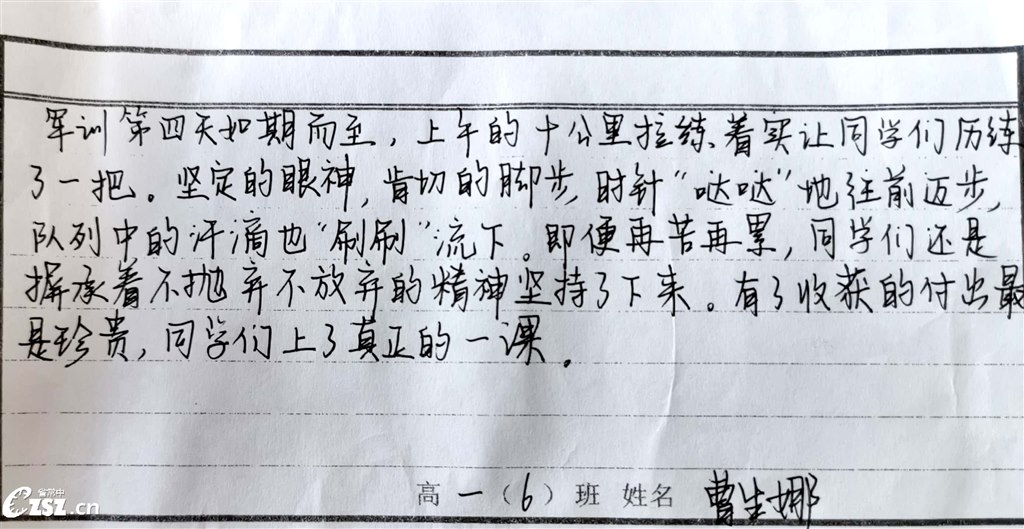 军训第四天如期而至，上午的十公里拉练、着实让同学们历练
了一把。坚定的眼神，肯切的脚步，时针“哒哒”地往前迈步，
队列中的汗滴也“刷刷”流下。即便再苦再累，同学们还是
摒承着不抛弃不放弃的精神坚持了下来。有了收获的付出最
是珍贵，同学们上了真正的一课。
高一（6）班 姓名 曹生娜
省常中
CZSZ.cn